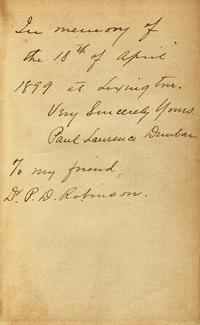 In memory of
the 18th of April
1899 at Lexington.
Very Sincerely Yours,
Paul Laurence Dunbar.
To my friend,
Dr. P. D. Robinson.